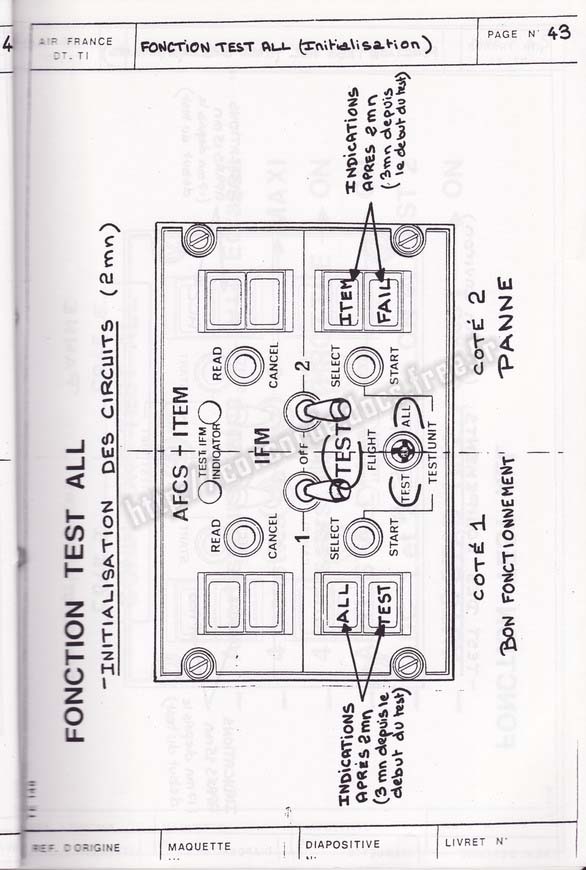 4
AIR FRANCE
DT. TI
FONCTION TEST ALL (Initialisation)
PAGE N° 43
FONCTION TEST ALL
-INITIALISATION DES CIRCUITS (2mn)
AFCS + ITEM
READ
CANCEL
TEST IFM
INDICATOR
READ
CANCEL
IFM
1
OFF
2
SELECT
START
TEST
FLIGHT
TEST
ALL
TEST/UNIT
SELECT
START
ALL
TEST
ITEM
FAIL
INDICATIONS
APRÈS 2mn
(3 mn depuis le
debut du test)
INDICATIONS
APRES 2mn
(3mn depuis
le debut du test)
COTÉ 1
BON FONCTIONNEMENT
COTÉ 2
PANNE
REF. D'ORIGINE
MAQUETTE
DIAPOSITIVE
LIVRET N°